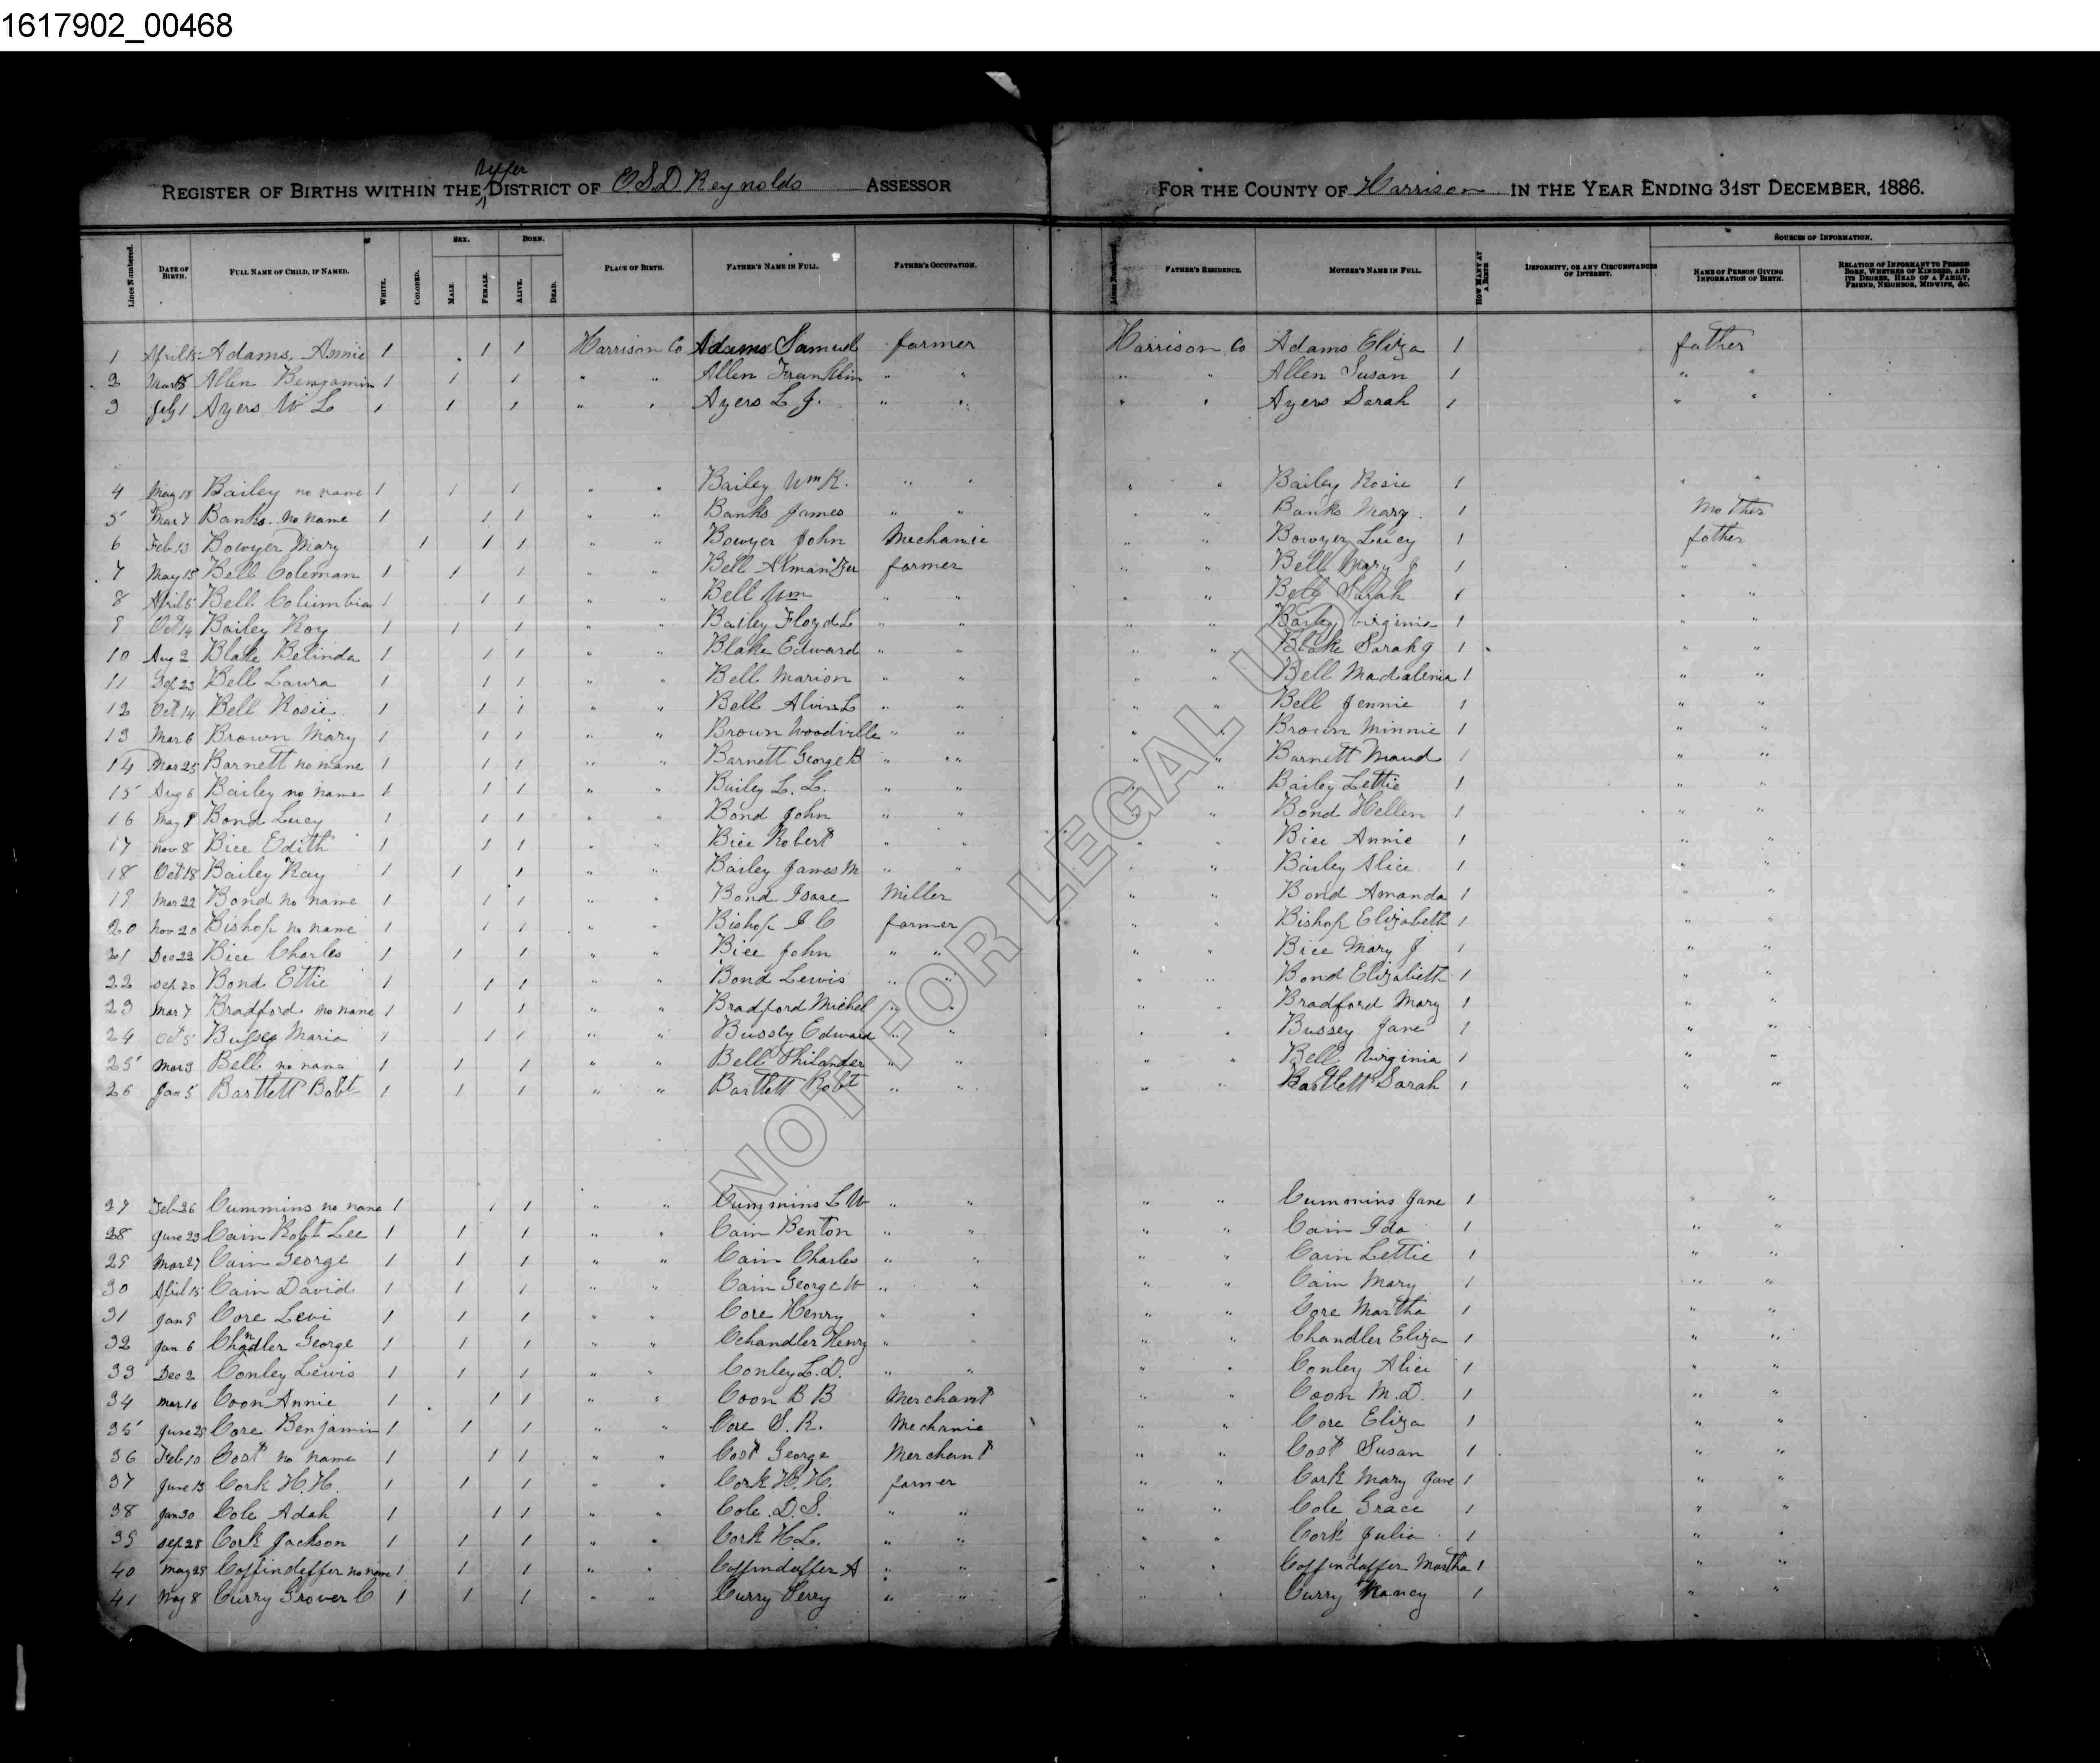 1617902_00468
Upper
REGISTER OF BIRTHS WITHIN THE DISTRICT OF O S D Reynolds ASSESSOR FOR THE COUNTY OF Harrison IN THE YEAR ENDING 31ST DECEMBER, 1886.
Lines Numbered. DATE OF BIRTH. FULL NAME OF CHILD, IF NAMED. WHITE. COLORED. SEX. MALE. FEMALE. BORN. ALIVE. DEAD. PLACE OF BIRTH. FATHER'S NAME IN FULL. FATHER'S OCCUPATION. Lines Numbered. FATHER'S RESIDENCE. MOTHER'S NAME IN FULL. HOW MANY AT A BIRTH DEFORMITY, OR ANY CIRCUMSTANCES OF INTEREST. SOURCES OF INFORMATION. NAME OF PERSON GIVING INFORMATION OF BIRTH. RELATION OF INFORMANT TO PERSON BORN, WHETHER OF KINDRED, AND ITS DEGREE, HEAD OF A FAMILY, FRIEND, NEIGHBOR, MIDWIFE, &C.
1 April 15 Adams, Annie 1 1 1 Harrison Co Adams Samuel farmer Harrison Co Adams Eliza 1 father
2 Allen Benjamin 1 1 1 " " Allen Franklin " " " " Allen Susan 1 " "
3 July 1 Ayers W L 1 1 1 " " Ayers L J. " " " " Ayers Sarah 1 " "
4 May 18 Bailey no name 1 1 1 " " Bailey Wm R. " " " " Bailey Rosie 1 " "
5 Mar 7 Banks no name 1 1 1 " " Banks James " " " " Banks Mary 1 Mother
6 Feb 13 Bowyer Mary 1 1 1 " " Bowyer John Mechanic " " Bowyer Lucy 1 father
7 May 15 Bell Coleman 1 1 1 " " Bell farmer " " Bell Mary J 1 " "
8 April 5 Bell Columbia 1 1 1 " " Bell Wm " " " " Bell Sarah 1 " "
9 Oct 14 Bailey Roy 1 1 1 " " Bailey Floyd L " " " " Bailey Virginia 1 " "
10 Aug 2 Blake Belinda 1 1 1 " " Blake Edward " " " " Blake Sarah J 1 " "
11 Sep 23 Bell Laura 1 1 1 " " Bell Marion " " " " Bell Madalenia 1 " "
12 Oct 14 Bell Rosie 1 1 1 " " Bell Alvin L " " " " Bell Jennie 1 " "
13 Mar 6 Brown Mary 1 1 1 " " Brown Woodville " " " " Brown Minnie 1 " "
14 Mar 25 Barnett no name 1 1 1 " " Barnett George B " " " " Barnett Maud 1 " "
15 Aug 6 Bailey no name 1 1 1 " " Bailey L. L. " " " " Bailey Lettie 1 " "
16 May 8 Bond Lucy 1 1 1 " " Bond John " " " " Bond Hellen 1 " "
17 Nov 8 Bice Edith 1 1 1 " " Bice Robert " " " " Bice Annie 1 " "
18 Oct 18 Bailey Ray 1 1 1 " " Bailey James M " " " " Bailey Alice 1 " "
19 Mar 22 Bond no name 1 1 1 " " Bond Isaac Miller " " Bond Amanda 1 " "
20 Nov 20 Bishop no name 1 1 1 " " Bishop I C farmer " " Bishop Elizabeth 1 " "
21 Dec 22 Bice Charles 1 1 1 " " Bice John " " " " Bice Mary J 1 " "
22 Sep 20 Bond Ettie 1 1 1 " " Bond Lewis " " " " Bond Elizabeth 1 " "
23 Mar 7 Bradford no name 1 1 1 " " Bradford Michel " " " " Bradford Mary 1 " "
24 Oct 5 Bussey Maria 1 1 1 " " Bussey Edward " " " " Bussey Jane 1 " "
25 Mar 3 Bell no name 1 1 1 " " Bell Philander " " " " Bell Virginia 1 " "
26 Jan 5 Bartlett Robt 1 1 1 " " Bartlett Robt " " " " Bartlett Sarah 1 " "
27 Feb 26 Cummins no name 1 1 1 " " Cummins L W " " " " Cummins Jane 1 " "
28 June 23 Cain Robt Lee 1 1 1 " " Cain Benton " " " " Cain Ida 1 " "
29 Mar 27 Cain George 1 1 1 " " Cain Charles " " " " Cain Lettie 1 " "
30 April 15 Cain David 1 1 1 " " Cain George W " " " " Cain Mary 1 " "
31 Jan 9 Core Levi 1 1 1 " " Core Henry " " " " Core Martha 1 " "
32 Jan 6 Chandler George 1 1 1 " " Chandler Henry " " " Chandler Eliza 1 " "
33 Dec 2 Conley Lewis 1 1 1 " " Conley L. D. " " " " Conley Alice 1 " "
34 Mar 16 Coon Annie 1 1 1 " " Coon B B Merchant " " Coon M. D. 1 " "
35 June 25 Core Benjamin 1 1 1 " " Core S. R. Mechanic " " Core Eliza 1 " "
36 Feb 10 Cost no name 1 1 1 " " Cost George Merchant " " Cost Susan 1 " "
37 June 13 Cork H. H. 1 1 1 " " Cork H. H. farmer " " Cork Mary Jane 1 " "
38 Jan 30 Cole Adah 1 1 1 " " Cole D. S. " " " " Cole Grace 1 " "
39 Sep 28 Cork Jackson 1 1 1 " " Cork H L. " " " " Cork Julia 1 " "
40 May 25 Coffindaffer no name 1 1 1 " " Coffindaffer A " " " " Coffindaffer Martha 1 " "
41 May 8 Curry Grover C 1 1 1 " " Curry Perry " " " " Curry Nancy 1 " "
NOT FOR LEGAL USE